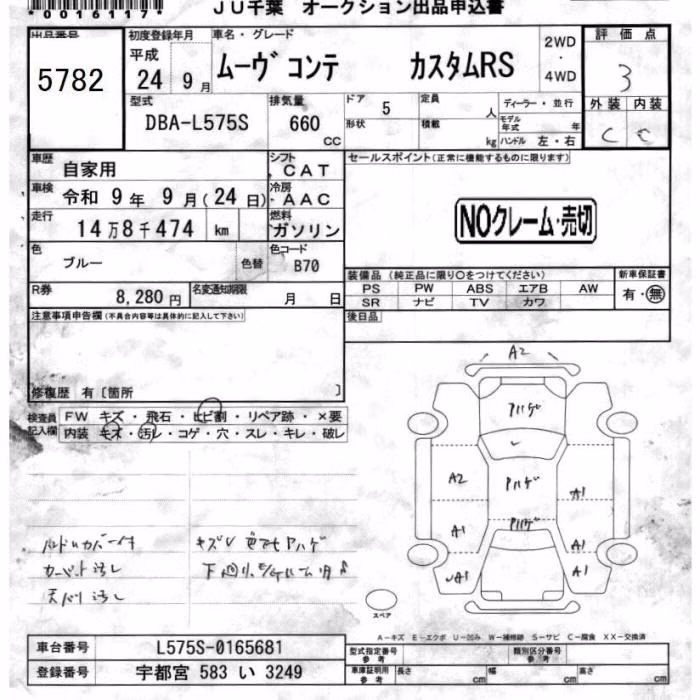 *0016117*
JU千葉 オークション出品申込書
出品番号
5782
初度登録年月
平成
24 9月
車名・グレード
ムーヴ コンテ カスタムRS
2WD
・
4WD
評価点
3
外装 内装
C C
型式
DBA-L575S
排気量
660
CC
ドア 5
形状
定員
人
積載
kg
ディーラー・並行
モデル年式 年
ハンドル 左・右
車歴
自家用
シフト
CAT
車検
令和 9年 9月(24日)
冷房
AAC
走行
14万8千474 km
燃料
ガソリン
色
ブルー
色替
色コード
B70
R券
8,280円
名変通知期限
月 日
セールスポイント(正常に機能するものに限ります)
NOクレーム・売切
装備品(純正品に限り○をつけてください)
PS PW ABS エアB AW
SR ナビ TV カワ
新車保証書
有・無
後日品
注意事項申告欄(不具合内容等は具体的に記入して下さい)
修復歴 有〔箇所 〕
検査員記入欄
FW キズ・飛石・ヒビ割・リペア跡・×要
内装 キズ・汚レ・コゲ・穴・スレ・キレ・破レ
ハンドルカバー付
カーペット汚レ
天バリ汚レ
A2
Aハゲ
A2
Aハゲ
A1
A1
Aハゲ
A1
A1
スペア
A-キズ E-エクボ U-凹み W-補修跡 S-サビ C-腐食 XX-交換済
車台番号
L575S-0165681
登録番号
宇都宮 583 い 3249
型式指定番号
参考
類別区分番号
参考
車庫証明用
参考
長さ cm
幅 cm
高さ cm